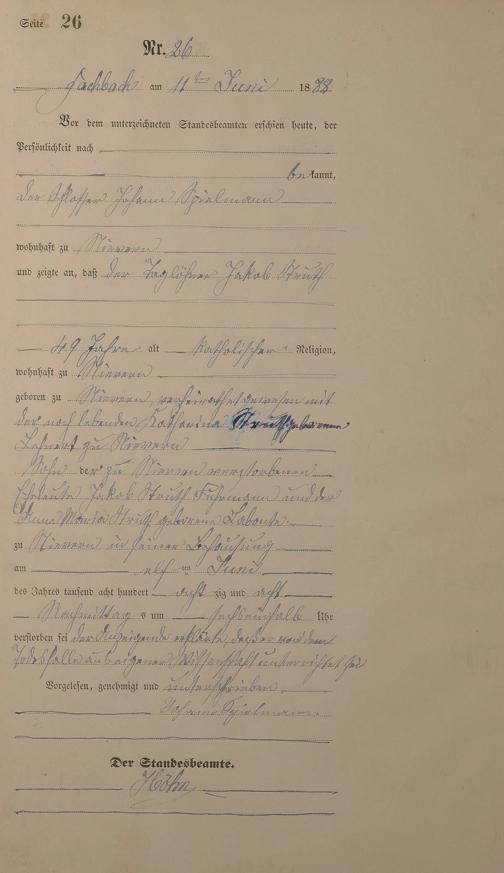 Seite 26
Nr. 26
Fachbach am 11ten Juni 1888
Vor dem unterzeichneten Standesbeamten erschien heute, der
Persönlichkeit nach
bekannt,
der Schlosser Johann Spielmann
wohnhaft zu Nievern
und zeigte an, daß der Taglöhner Jakob Struth
49 Jahre alt katholischer Religion,
wohnhaft zu Nievern
geboren zu Nievern, verheirathet gewesen mit
der noch lebenden Katharina Struth geborene
Lehnert zu Nievern
Sohn der zu Nievern verstorbenen
Eheleute Jakob Struth Fuhrmann und der
Anna Maria Struth geborene Labonte
zu Nievern in seiner Behausung
am elften Juni
des Jahres tausend acht hundert achtzig und acht
Nachmittags um sechseinhalb Uhr
verstorben sei der Anzeigende erklärte, daß er von dem
Todesfalle aus eigener Wissenschaft unterrichtet sei
Vorgelesen, genehmigt und unterschrieben
Johann Spielmann
Der Standesbeamte.
Höhn